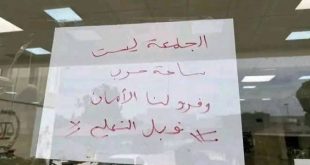 الجامعة ليست
ساحة حرب
وفروا لنا الأمان
قبل التعليم